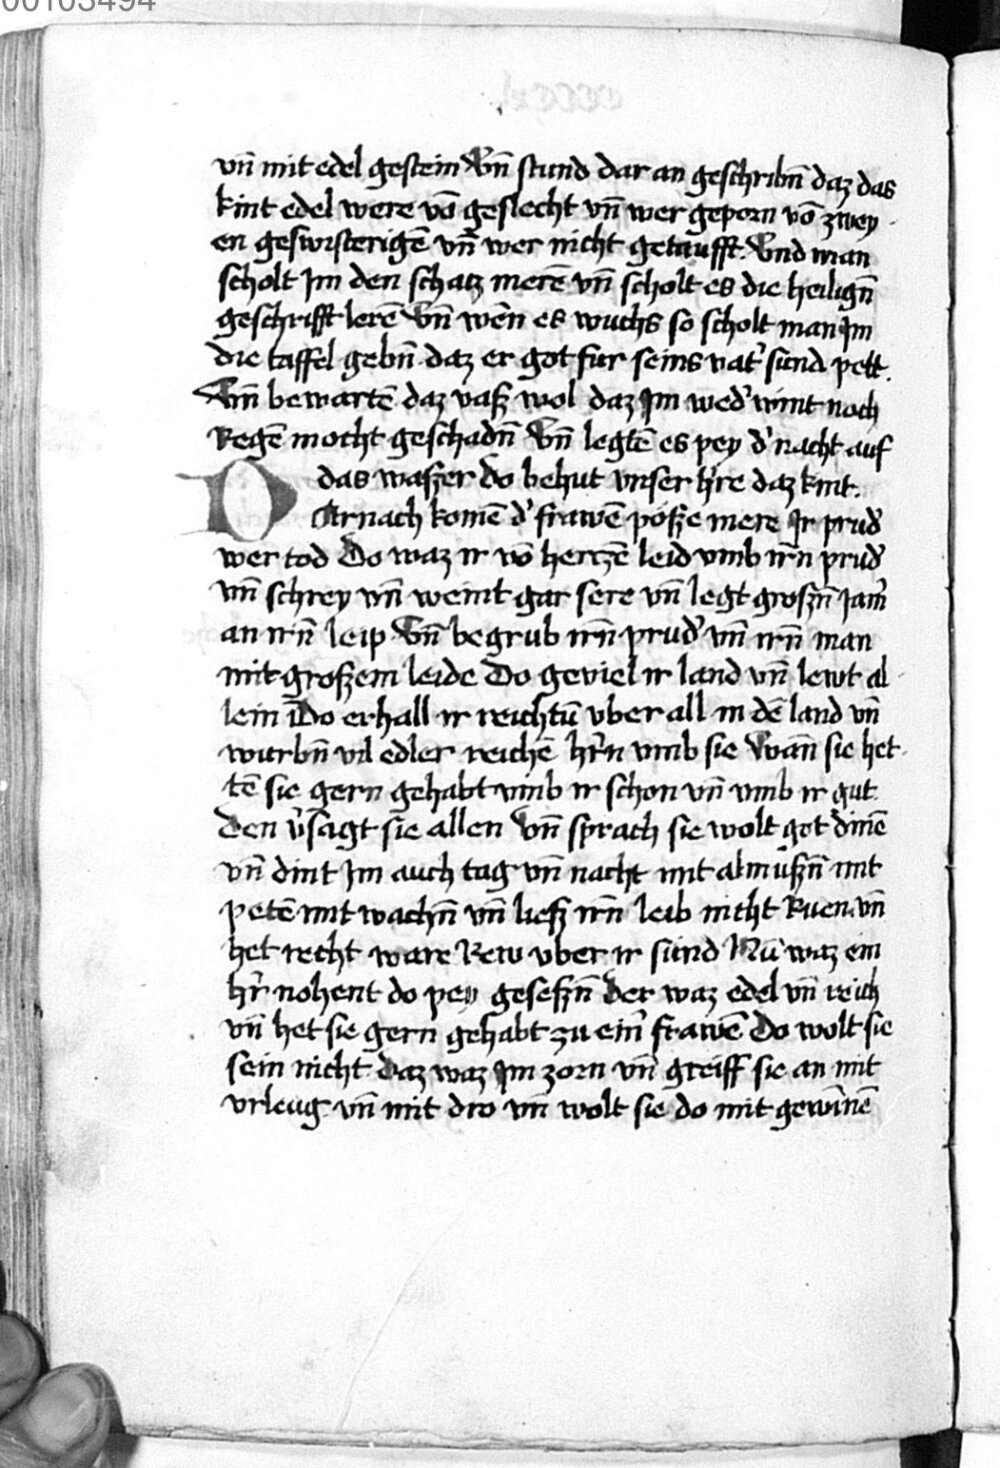 00103494
vn̄ mit edel gestein Vn̄ stund dar an geschribn̄ daz das
kint edel were vō geslecht vn̄ wer geporn vō zwey
en geswisterigē vn̄ wer nicht getaufft. Vnd man
scholt Im den schatz merē vn̄ scholt es die heilign̄
geschrifft lerē Vn̄ wēn es wuchs so scholt man Im
die taffel gebn̄ daz er got fur seins vat' sund pett.
Vn̄ bewartē daz vasz wol daz Im wed' wint noch
Regē mocht geschadn̄ Vn̄ legtē es pey d' nacht auf
das waszer do behut vnser h're daz kint.
DArnach komē d' frawē posze mere Ir prud'
wer tod Do waz ir vō hertzē leid vmb irn̄ prud'
vn̄ schrey vn̄ weint gar sere vn̄ legt groszn̄ Jam'
an irn̄ leip Vn̄ begrub irn̄ prud' vn̄ irn̄ man
mit groszem leide Do geviel ir land vn̄ lewt al
lein Do erhall ir reichtū vber all in dē land vn̄
wurbn̄ vil edler reichē hr̄n vmb sie Wān sie het
tē sie gern gehabt vmb ir schon vn̄ vmb ir gut.
Den v'sagt sie allen Vn̄ sprach sie wolt got dinē
vn̄ dint Im auch tag vn̄ nacht mit almuszn̄ mit
petē mit wachn̄ vn̄ liesz irn̄ leib nicht Ruen. vn̄
het recht ware Rew vber ir sünd Nū waz ein
h'r nohent do pey geseszn̄ Der waz edel vn̄ reich
vn̄ het sie gern gehabt zu ein' frawē Do wolt sie
sein nicht Daz waz Im zorn vn̄ greiff sie an mit
vrleug vn̄ mit dro vn̄ wolt sie do mit gewīnē